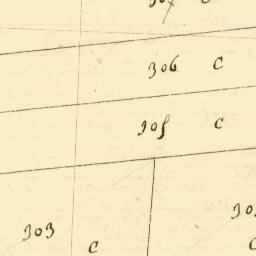 306 C
305 C
303
C